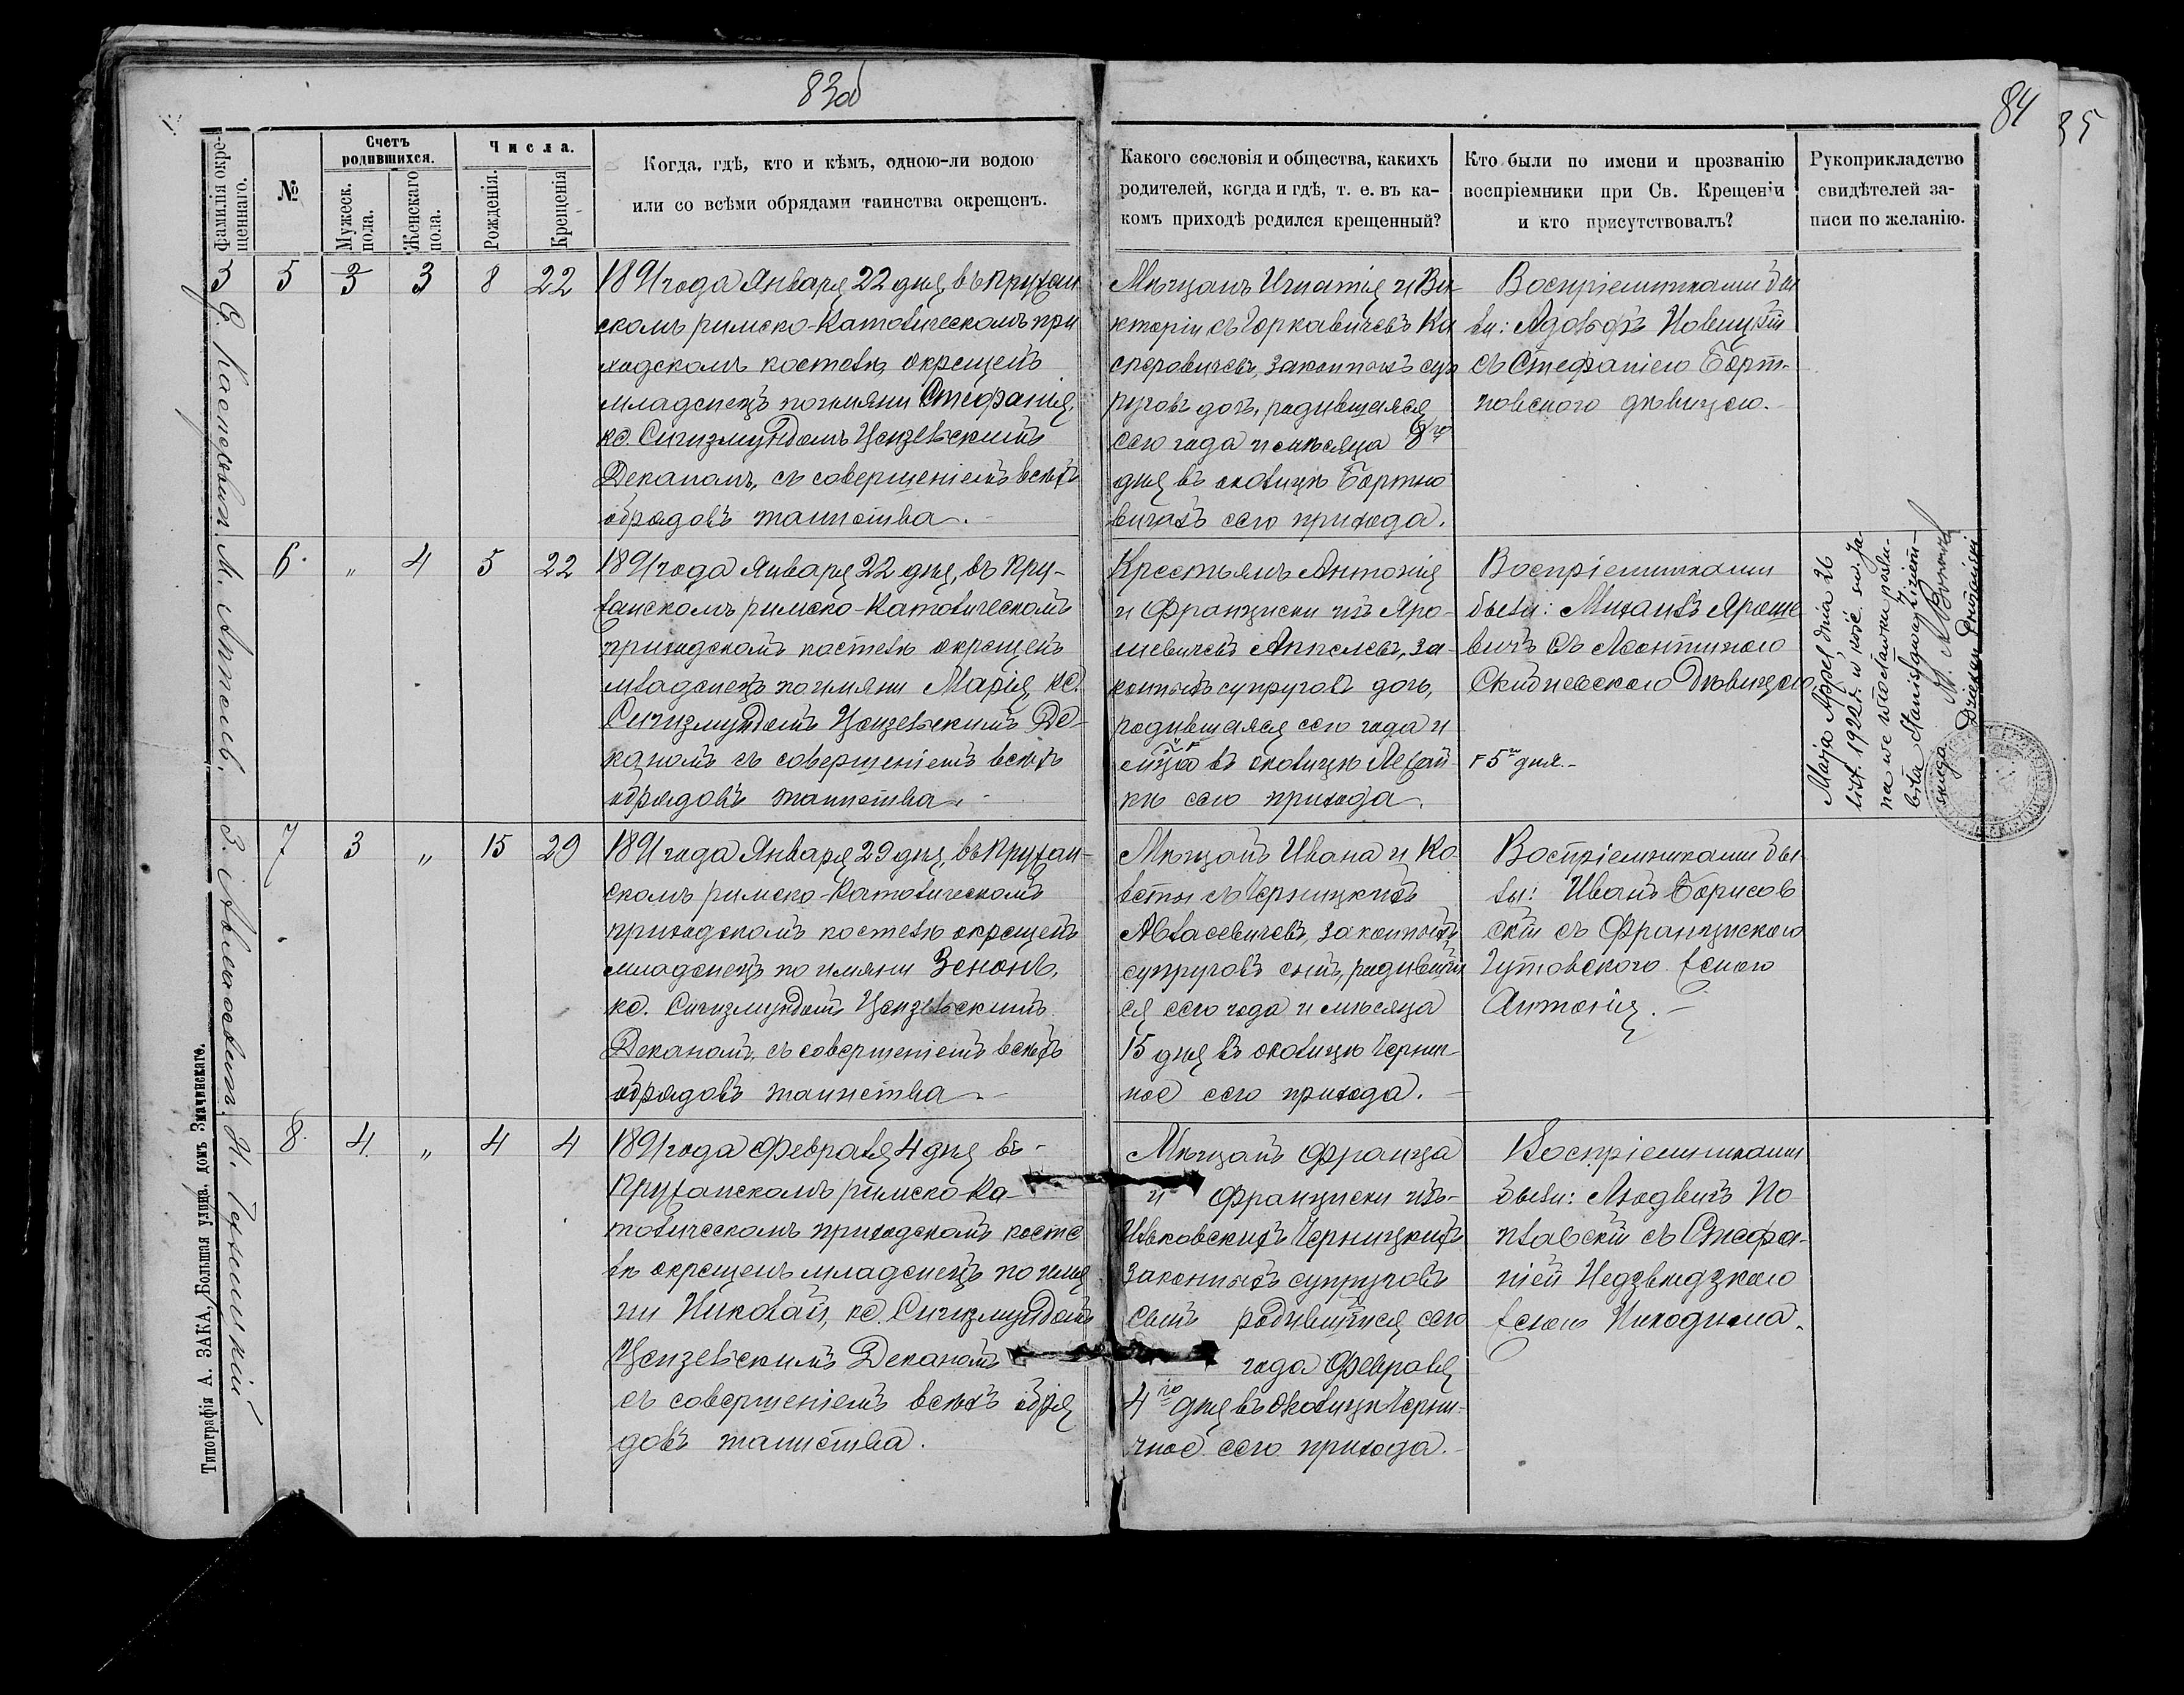 83об
84
35
фамилія окре-
щеннаго.
№
Счетъ
родившихся.
Мужеск.
пола.
Женскаго
пола.
Числа.
Рожденія.
Крещенія
Когда, гдѣ, кто и кѣмъ, одною-ли водою
или со всѣми обрядами таинства окрещенъ.
Какого сословія и общества, какихъ
родителей, когда и гдѣ, т. е. въ ка-
комъ приходѣ родился крещенный?
Кто были по имени и прозванію
воспріемники при Св. Крещеніи
и кто присутствовалъ?
Рукоприкладство
свидѣтелей за-
писи по желанію.
5
3
3
8
22
1891 года Января 22 дня, въ Пружан
скомъ римско-Католическомъ при
ходскомъ костелѣ окрещенъ
младенецъ по имяни Стефанія,
кс. Сигизмундомъ Ценzельскимъ
Деканомъ, съ совершеніемъ всѣхъ
обрядовъ таинства.
Мѣщанъ Игнатія и Ви-
кторіи съ Горкавичевъ Ка
сперовичевъ, законныхъ суп
руговъ дочь, родившаяся
сего года и мѣсяца 8го
дня въ околицѣ Бортно
вичахъ сего прихода.
Воспріемниками бы
ли: Адольфъ Новицкій
съ Стефаніею Борт-
новскою дѣвицею.
6.
"
4
5
22
1891 года Января 22 дня, въ Пру-
жанскомъ римско-Католическомъ
приходскомъ костелѣ окрещенъ
младенецъ по имяни Марія кс.
Сигизмундомъ Ценzельскимъ Де-
каномъ съ совершеніемъ всѣхъ
обрядовъ таинства.
Крестьянъ Антонія
и Франциски изъ Яро-
шевичевъ Аппелевъ, за-
конныхъ супруговъ дочь,
родившаяся сего года и
м-ца въ околицѣ
сего прихода.
Воспріемниками
были: Михаилъ Яроше
вичъ съ Леонтиною
дѣвицею.
г 5го дня.-
Marja Appel dnia 26
list. 1922 r. w kośc. św. Ja-
na we Włocławku poślu-
biła Stanisława
Dziekan Prużański
7
3
"
15
29
1891 года Января 29 дня, въ Пружан-
скомъ римско-Католическомъ
приходскомъ костелѣ окрещенъ
младенецъ по имяни Зенонъ,
кс. Сигизмундомъ Ценzельскимъ
Деканомъ, съ совершеніемъ всѣхъ
обрядовъ таинства.
Мѣщанъ Ивана и Ко
съ Черницкихъ
Авласевичевъ, законныхъ
супруговъ сынъ, родившій
ся сего года и мѣсяца
15 дня въ околицѣ Чернич-
ное сего прихода.
Воспріемниками бы-
ли: Иванъ Борисов
скій съ Францискою
Гутовскою женою
Антонія.
8.
4.
"
4
4
1891 года Февраля 4 дня въ-
Пружанскомъ римско-Ка-
толическомъ приходскомъ косте
лѣ окрещенъ младенецъ по имя
ни Николай, кс. Сигизмундомъ
Ценzельскимъ Деканомъ
съ совершеніемъ всѣхъ обря
довъ таинства.
Мѣщанъ Франца
и Франциски изъ-
Черницкихъ
законныхъ супруговъ
сынъ родившійся сего
года Февраля
4го дня въ околицѣ Черни-
чное сего прихода.
Воспріемниками
были: Людвигъ По
плавскій съ Стефа-
ніей Недзвѣдзкою
женою Никодима.
С. Касперович.
М. Аппель.
З. Авласевич.
Н. Черницкій
Типографія А. ЗАКА, Большая улица, домъ Значинскаго.